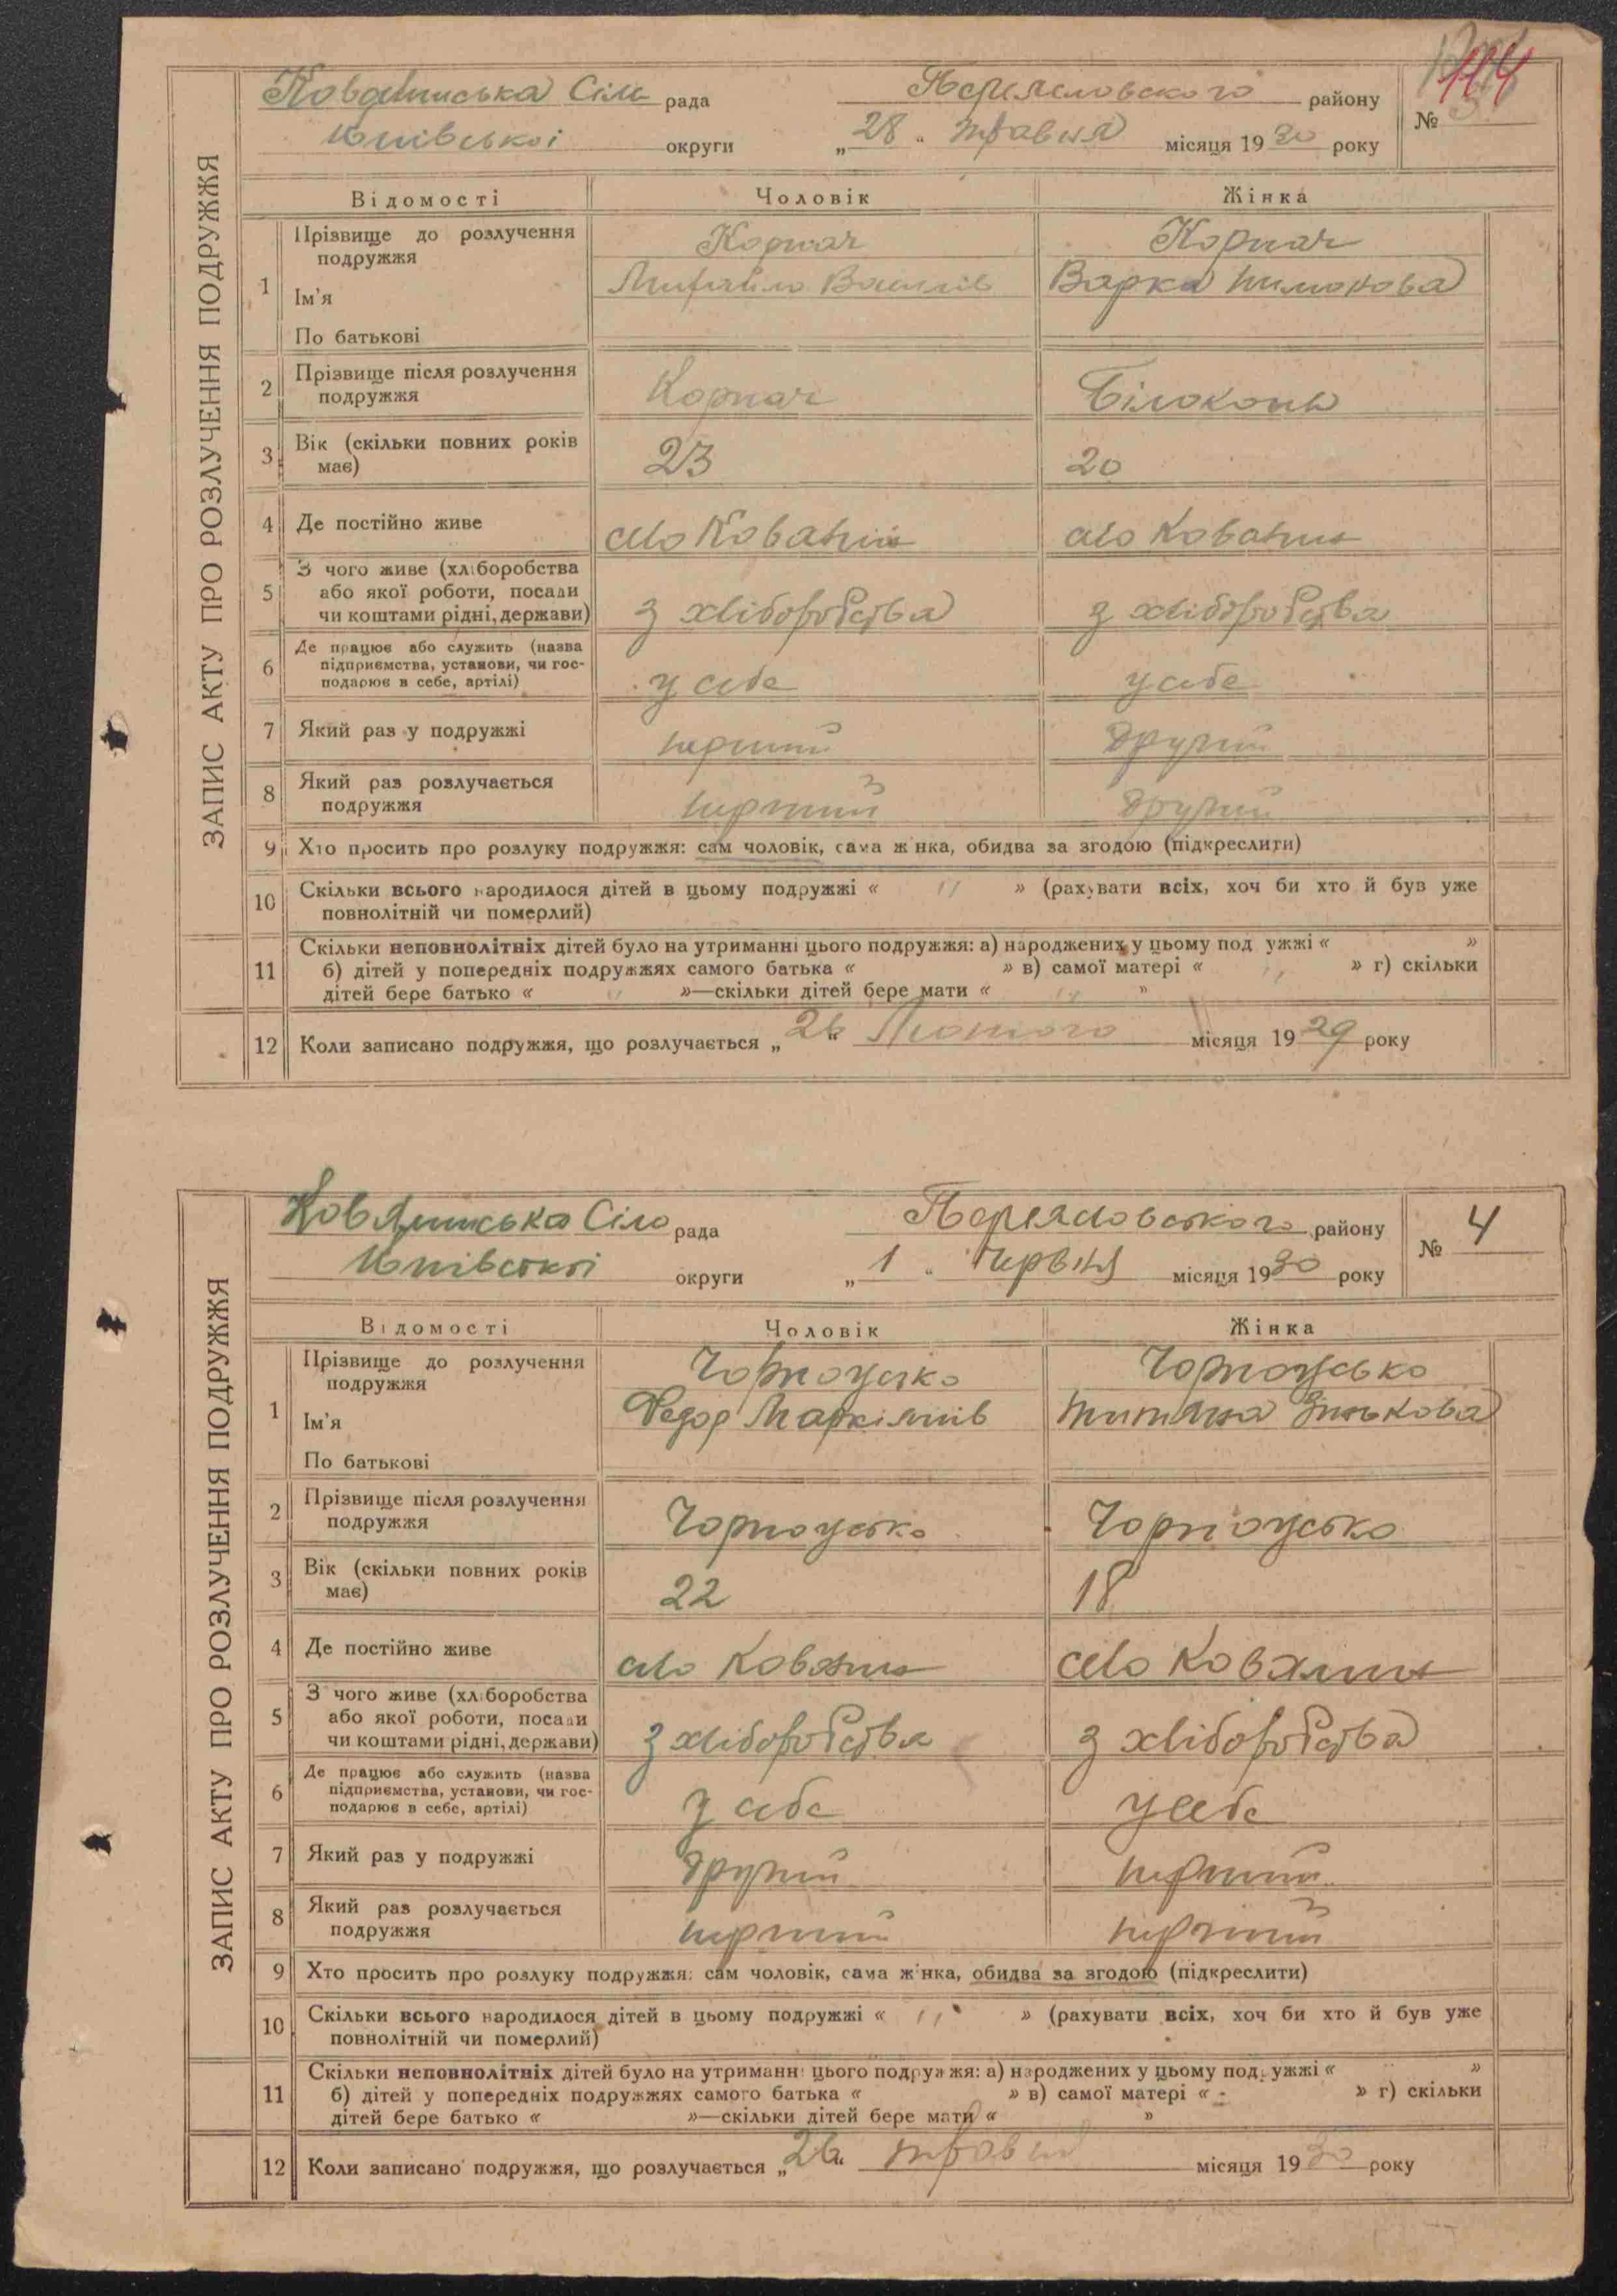 114
ЗАПИС АКТУ ПРО РОЗЛУЧЕННЯ ПОДРУЖЖЯ
Сіль рада Переяславського району
Київської округи „28" травня місяця 1930 року №
Відомості Чоловік Жінка
1 Прізвище до розлучення подружжя Корнач Корнач
Ім'я Михайло Василів Варка Пимонова
По батькові
2 Прізвище після розлучення подружжя Корнач Білоконь
3 Вік (скільки повних років має) 23 20
4 Де постійно живе село Ковалин село Ковалин
5 З чого живе (хліборобства або якої роботи, посади чи коштами рідні, держави) з хліборобства з хліборобства
6 Де працює або служить (назва підприємства, установи, чи господарює в себе, артілі) у себе у себе
7 Який раз у подружжі перший другий
8 Який раз розлучається подружжя перший другий
9 Хто просить про розлуку подружжя: сам чоловік, сама жінка, обидва за згодою (підкреслити)
10 Скільки всього народилося дітей в цьому подружжі « " » (рахувати всіх, хоч би хто й був уже
повнолітній чи померлий)
11 Скільки неповнолітніх дітей було на утриманні цього подружжя: а) народжених у цьому подружжі « »
б) дітей у попередніх подружжях самого батька « » в) самої матері « " » г) скільки
дітей бере батько « " »—скільки дітей бере мати « " »
12 Коли записано подружжя, що розлучається „26" Лютого місяця 1929 року
ЗАПИС АКТУ ПРО РОЗЛУЧЕННЯ ПОДРУЖЖЯ
Сіль рада Переяславського району
Київської округи „1" Червня місяця 1930 року № 4
Відомості Чоловік Жінка
1 Прізвище до розлучення подружжя Чорноусько Чорноусько
Ім'я Федор Маркіянів Титяна Зінькова
По батькові
2 Прізвище після розлучення подружжя Чорноусько Чорноусько
3 Вік (скільки повних років має) 22 18
4 Де постійно живе село Ковялин село Ковялин
5 З чого живе (хліборобства або якої роботи, посади чи коштами рідні, держави) з хліборобства з хліборобства
6 Де працює або служить (назва підприємства, установи, чи господарює в себе, артілі) у себе у себе
7 Який раз у подружжі другий перший
8 Який раз розлучається подружжя перший перший
9 Хто просить про розлуку подружжя: сам чоловік, сама жінка, обидва за згодою (підкреслити)
10 Скільки всього народилося дітей в цьому подружжі « " » (рахувати всіх, хоч би хто й був уже
повнолітній чи померлий)
11 Скільки неповнолітніх дітей було на утриманні цього подружжя: а) народжених у цьому подружжі « »
б) дітей у попередніх подружжях самого батька « » в) самої матері « - » г) скільки
дітей бере батько « »—скільки дітей бере мати « »
12 Коли записано подружжя, що розлучається „26" травня місяця 1930 року